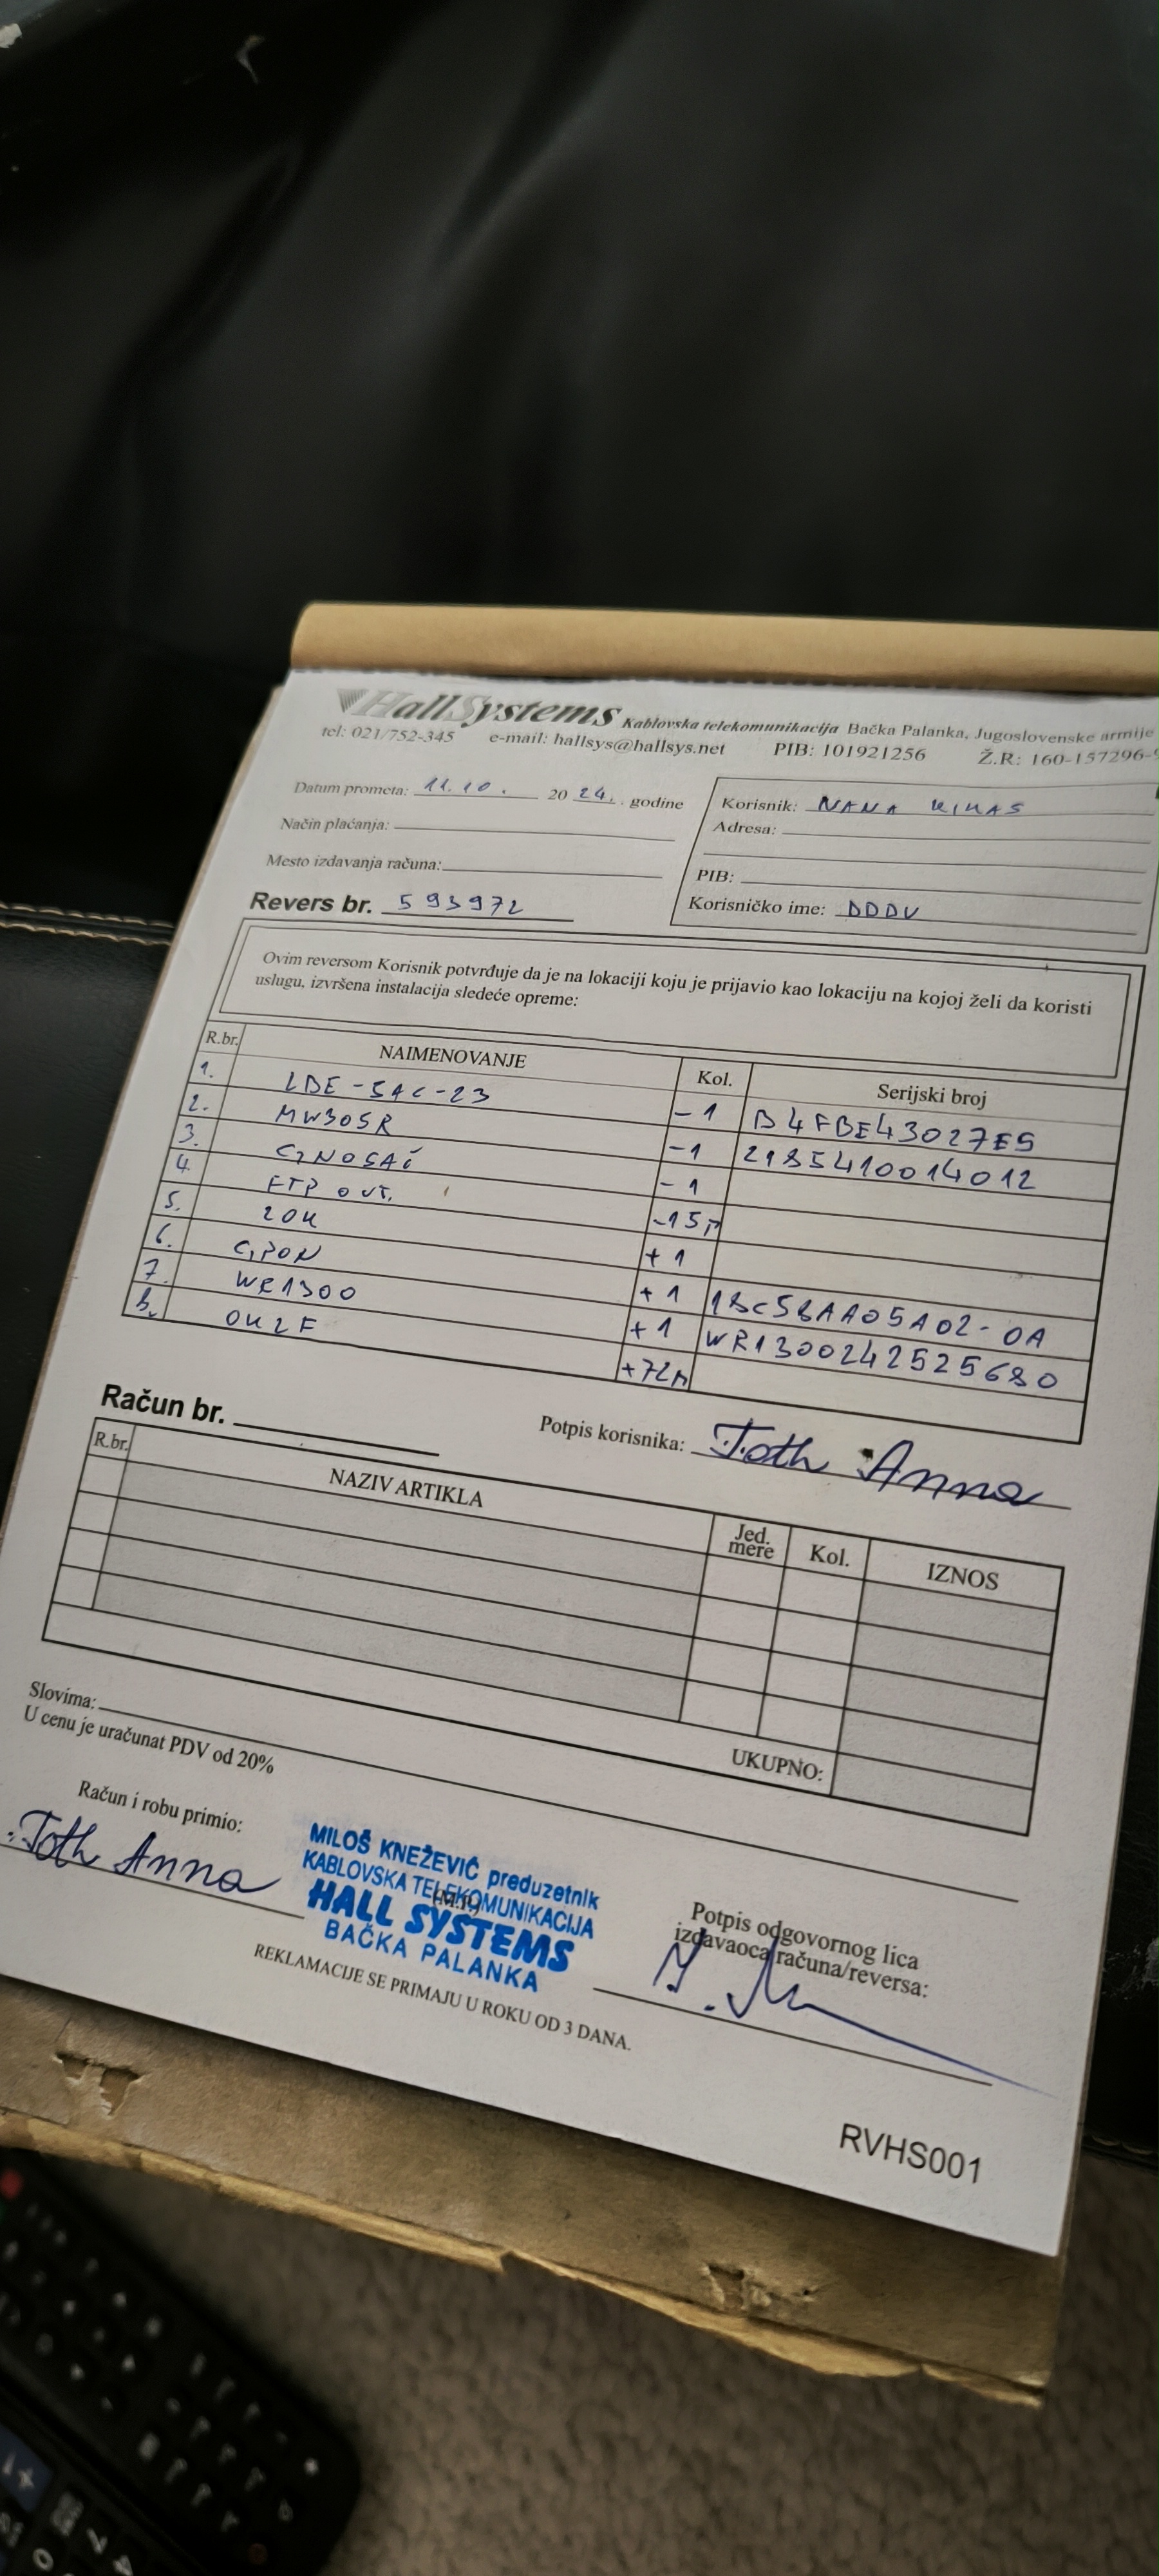 HallSystems Kablovska telekomunikacija Bačka Palanka, Jugoslovenske armije
tel: 021/752-345 e-mail: hallsys@hallsys.net PIB: 101921256 Ž.R: 160-157296-
Datum prometa: 11.10. 2024. godine
Način plaćanja:
Mesto izdavanja računa:
Revers br. 593972
Korisnik: NANA
Adresa:
PIB:
Korisničko ime: DDDV
Ovim reversom Korisnik potvrđuje da je na lokaciji koju je prijavio kao lokaciju na kojoj želi da koristi
uslugu, izvršena instalacija sledeće opreme:
R.br. NAIMENOVANJE Kol. Serijski broj
1. LBE-5AC-23 -1 B4FBE43027E9
2. MW305R -1 2185410014012
3. -1
4. FTP OUT. -15m
5. ZOK +1
6. GPON +1 18C5BAA05A02-0A
7. WR1300 +1 WR1300242525680
8. OK2F +72m
Potpis korisnika: Toth Anna
Račun br.
R.br. NAZIV ARTIKLA Jed. mere Kol. IZNOS
UKUPNO:
Slovima:
U cenu je uračunat PDV od 20%
Račun i robu primio:
Toth Anna
MILOŠ KNEŽEVIĆ preduzetnik
KABLOVSKA TELEKOMUNIKACIJA
(M.P.)
HALL SYSTEMS
BAČKA PALANKA
Potpis odgovornog lica
izdavaoca računa/reversa:
REKLAMACIJE SE PRIMAJU U ROKU OD 3 DANA.
RVHS001